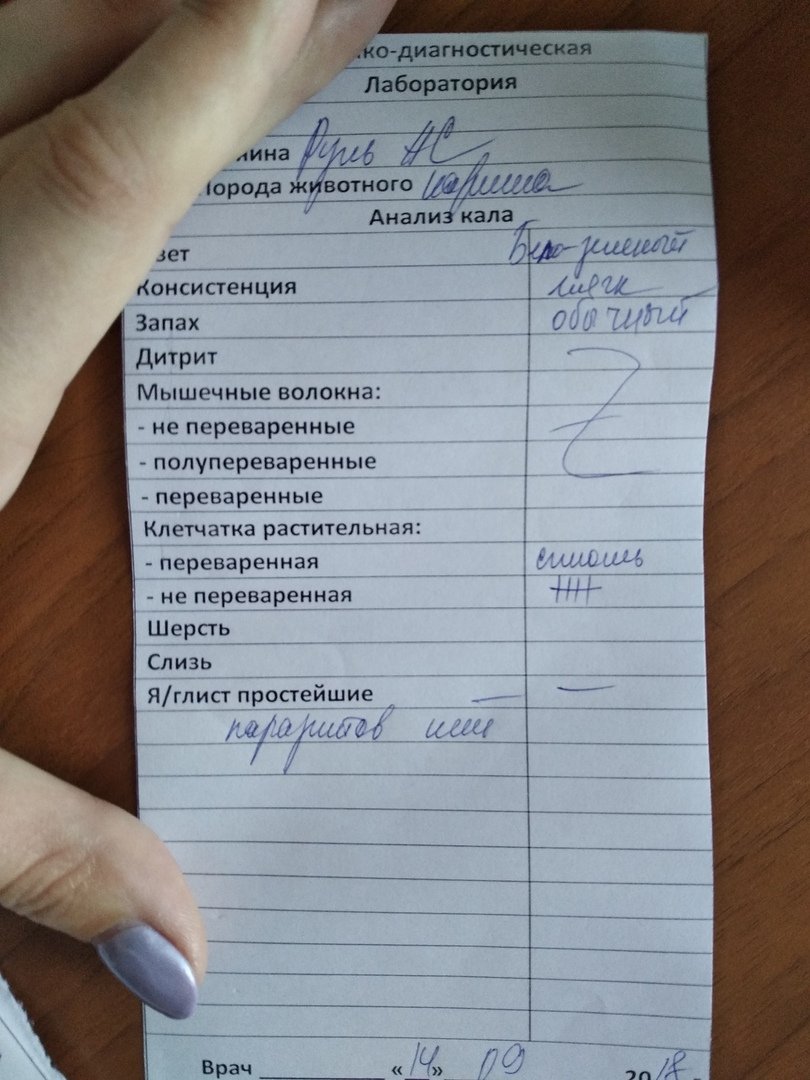 ко-диагностическая
Лаборатория
Руль АС
Порода животного
Анализ кала
вет Бело-зеленый
Консистенция мягк
Запах обычный
Дитрит
Мышечные волокна:
- не переваренные
- полупереваренные
- переваренные
Клетчатка растительная:
- переваренная сплошь
- не переваренная ++++
Шерсть
Слизь
Я/глист простейшие — —
паразитов нет
Врач «14» 09 2018